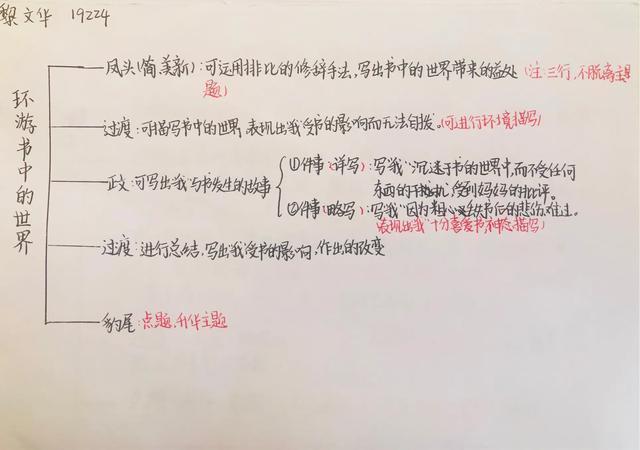 黎文华 19224
环游书中的世界
凤头(简、美、新):可运用排比的修辞手法,写出书中的世界带来的益处(注:三行,不脱离主
题)
过渡:可描写书中的世界,表现出"我"受书的影响而无法自拔。(可进行环境描写)
正文:可写出"我"与书发生的故事
①件事(详写):写"我"沉迷于书的世界中,而不受任何
东西的干扰,受到妈妈的批评。
②件事(略写):写"我"因为粗心丢失书后的悲伤、难过。
(表现出"我"十分喜爱书,神态描写)
过渡:进行总结,写出"我"受书的影响,作出的改变
豹尾:点题,升华主题